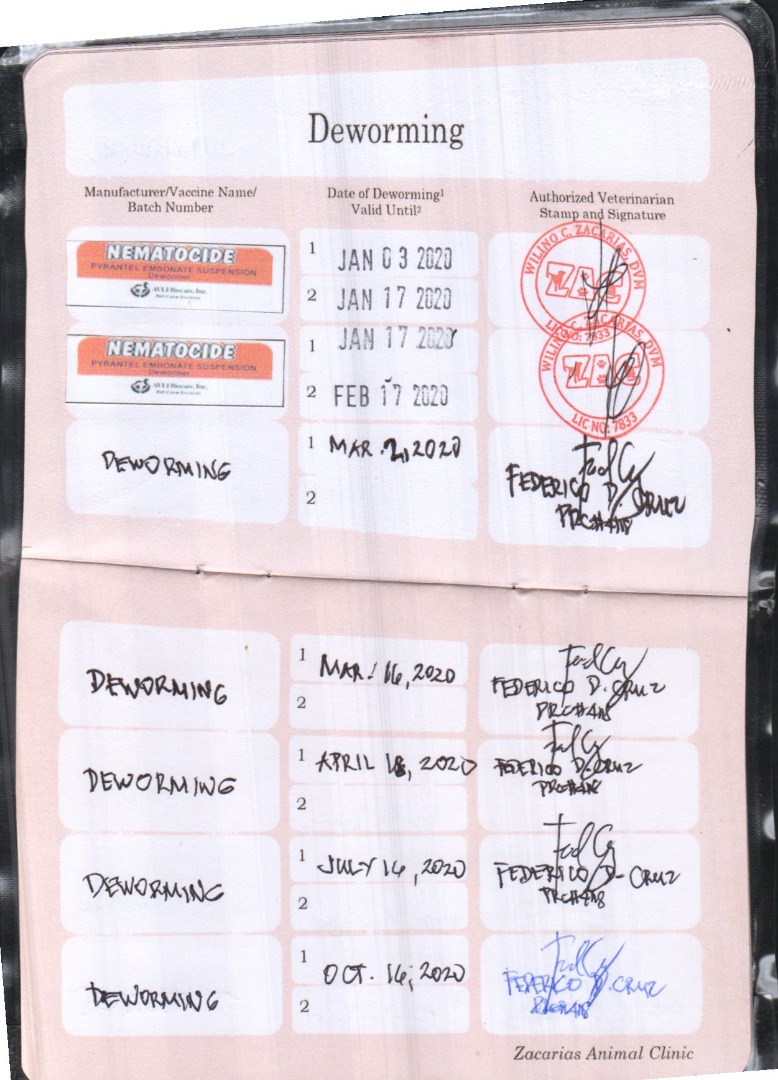 Deworming
Manufacturer/Vaccine Name/
Batch Number
Date of Deworming¹
Valid Until²
Authorized Veterinarian
Stamp and Signature
NEMATOCIDE
PYRANTEL EMBONATE SUSPENSION
Dewormer
AVLI Biocare, Inc.
Pet Care Division
1 JAN 03 2020
2 JAN 17 2020
WILINO C. ZACARIAS, DVM
ZAC
LIC NO: 7833
NEMATOCIDE
PYRANTEL EMBONATE SUSPENSION
Dewormer
AVLI Biocare, Inc.
Pet Care Division
1 JAN 17 2020
2 FEB 17 2020
WILINO C. ZACARIAS, DVM
ZAC
LIC NO: 7833
DEWORMING
1 MAR. 2, 2020
2
FEDERICO D. CRUZ
DEWORMING
1 MAR. 16, 2020
2
FEDERICO D. CRUZ
DEWORMING
1 APRIL 18, 2020
2
FEDERICO D. CRUZ
DEWORMING
1 JULY 16, 2020
2
FEDERICO D. CRUZ
DEWORMING
1 OCT. 16, 2020
2
FEDERICO D. CRUZ
Zacarias Animal Clinic